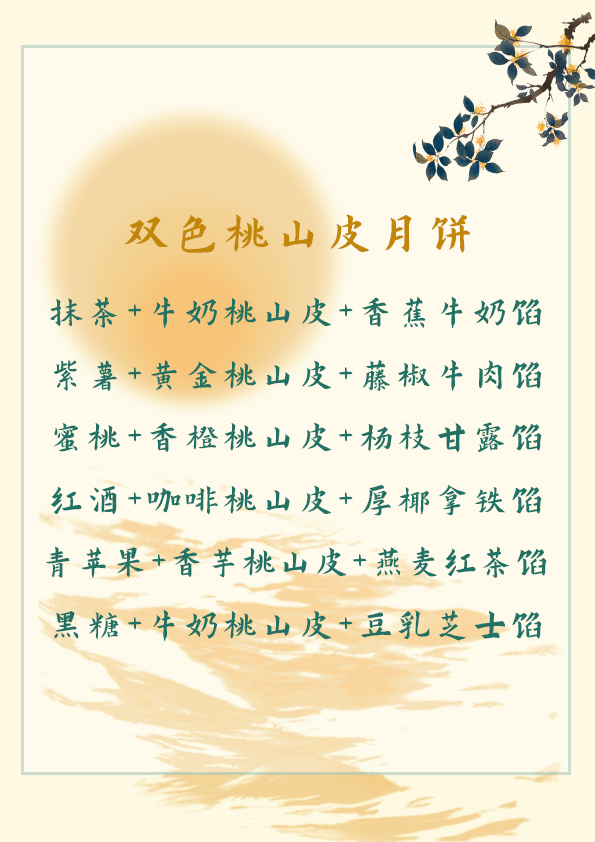 双色桃山皮月饼
抹茶+牛奶桃山皮+香蕉牛奶馅
紫薯+黄金桃山皮+藤椒牛肉馅
蜜桃+香橙桃山皮+杨枝甘露馅
红酒+咖啡桃山皮+厚椰拿铁馅
青苹果+香芋桃山皮+燕麦红茶馅
黑糖+牛奶桃山皮+豆乳芝士馅